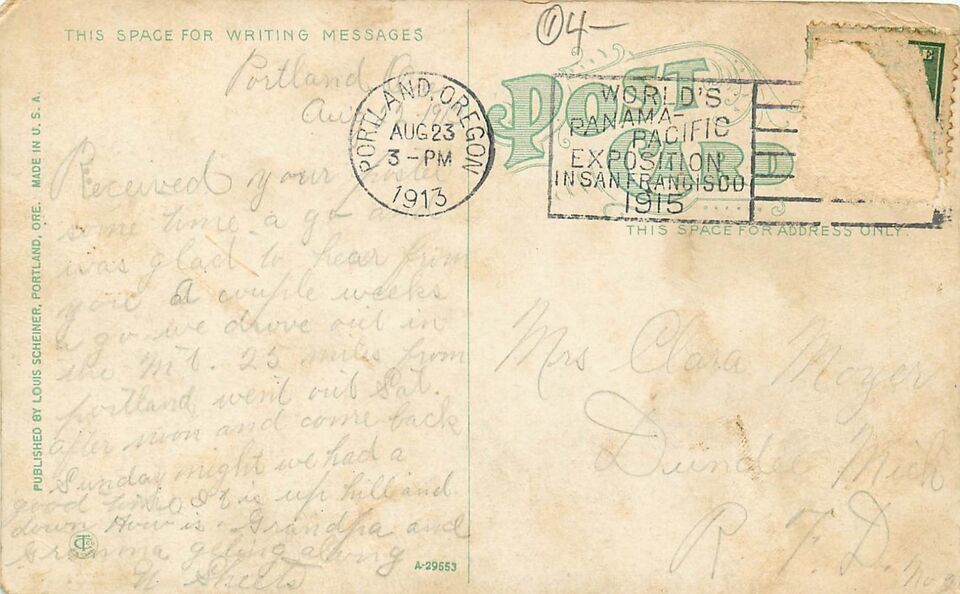 THIS SPACE FOR WRITING MESSAGES
04-
POST CARD
Portland Or
Aug
PORTLAND, OREGON
AUG 23
3-PM
1913
WORLD'S
PANAMA-
PACIFIC
EXPOSITION
IN SAN FRANCISCO
1915
THIS SPACE FOR ADDRESS ONLY
Received your postel
some time a go a
was glad to hear from
you A couple weeks
a go we drove out in
the Mt. 25 miles from
portland, went out Sat.
after noon and come back
Sunday night we had a
good time It is up hill and
down How is Grandpa and
Gramma geting along
Sheets
Mrs Clara Moyer
Dundee Mich
R. F. D. No
PUBLISHED BY LOUIS SCHEINER, PORTLAND, ORE. MADE IN U.S.A.
A-29553